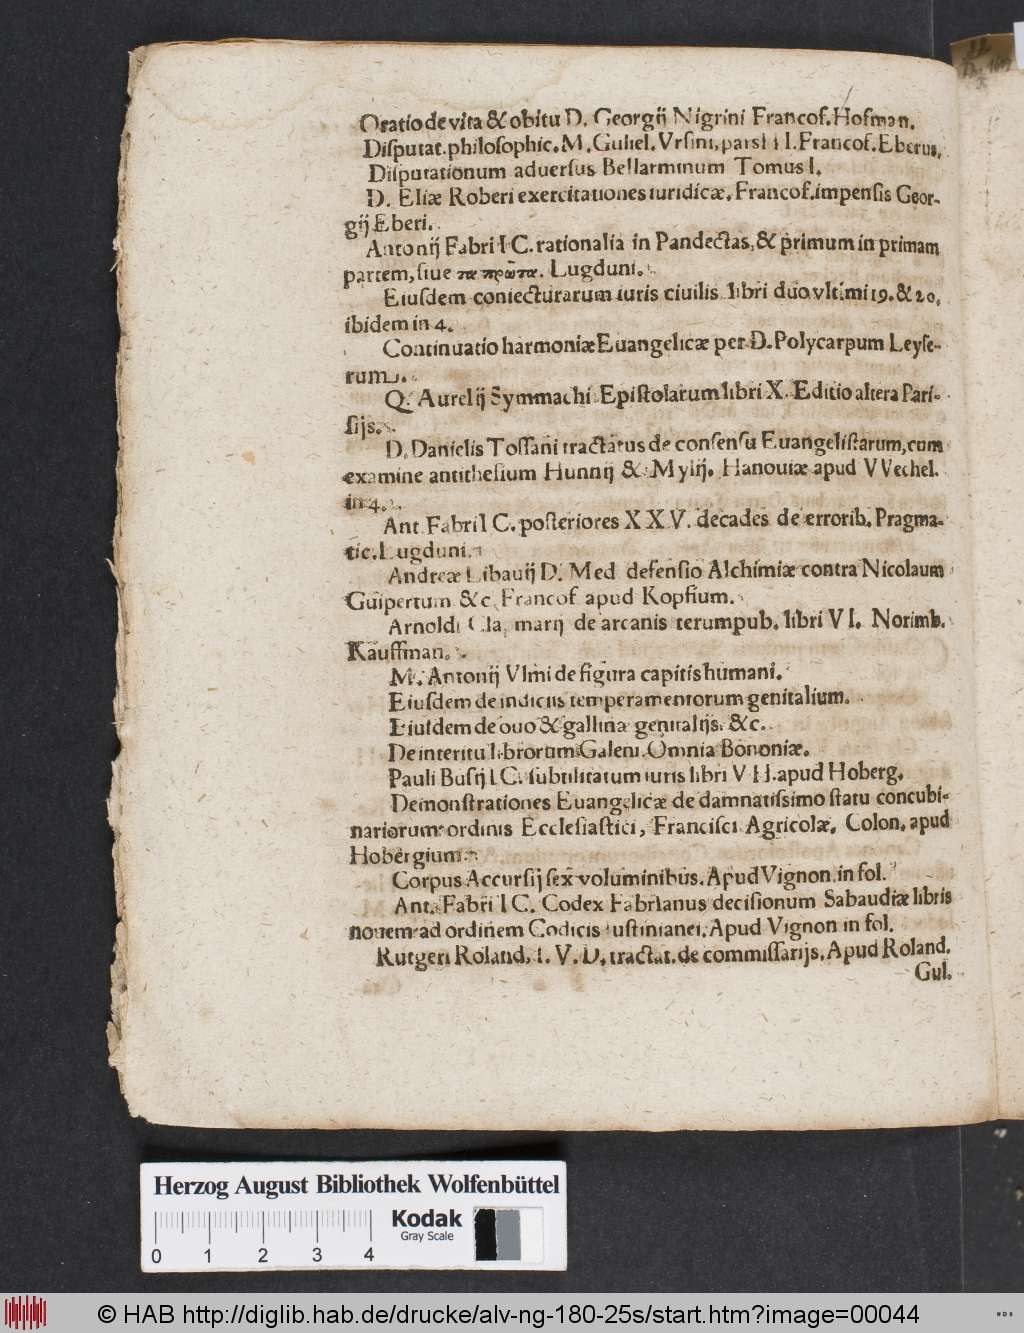 Oratio de vita & obitu D. Georgij Nigrini Francof. Hofman.
Disputat. philosophic. M. Guliel. Vrsini, pars III. Francof. Eberus.
Disputationum aduersus Bellarminum Tomus I.
D. Eliæ Roberi exercitationes iuridicæ. Francof. impensis Geor-
gij Eberi.
Antonij Fabri I C. rationalia in Pandectas, & primum in primam
partem, siue τα πρῶτα. Lugduni.
Eiusdem coniecturarum iuris ciuilis libri duo vltimi 19. & 20.
ibidem in 4.
Continuatio harmoniæ Euangelicæ per D. Polycarpum Leyse-
rum.
Q. Aurelij Symmachi Epistolarum libri X. Editio altera Pari-
sijs.
D. Danielis Tossani tractatus de consensu Euangelistarum, cum
examine antithesium Hunnij & Mylij. Hanouiæ apud VVechel.
in 4.
Ant. Fabri I C. posteriores XXV. decades de errorib. Pragma-
tic. Lugduni.
Andreæ Libauij D. Med defensio Alchimiæ contra Nicolaum
Guipertum &c. Francof apud Kopfium.
Arnoldi Clapmarij de arcanis rerumpub. libri VI. Norimb.
Kauffman.
M. Antonij Vlmi de figura capitis humani.
Eiusdem de indiciis temperamentorum genitalium.
Eiusdem de ouo & gallina genitalijs. &c.
De interitu librorum Galeni. Omnia Bononiæ.
Pauli Busij I C. subtilitatum iuris libri VII. apud Hoberg.
Demonstrationes Euangelicæ de damnatissimo statu concubi-
nariorum ordinis Ecclesiastici, Francisci Agricolæ. Colon. apud
Hobergium.
Corpus Accursij sex voluminibus. Apud Vignon. in fol.
Ant. Fabri I C. Codex Fabrianus decisionum Sabaudiæ libris
nouem ad ordinem Codicis Iustinianei. Apud Vignon in fol.
Rutgeri Roland. I. V. D. tractat. de commissarijs. Apud Roland.
Gul.
Herzog August Bibliothek Wolfenbüttel
Kodak
Gray Scale
0 1 2 3 4
© HAB http://diglib.hab.de/drucke/alv-ng-180-25s/start.htm?image=00044